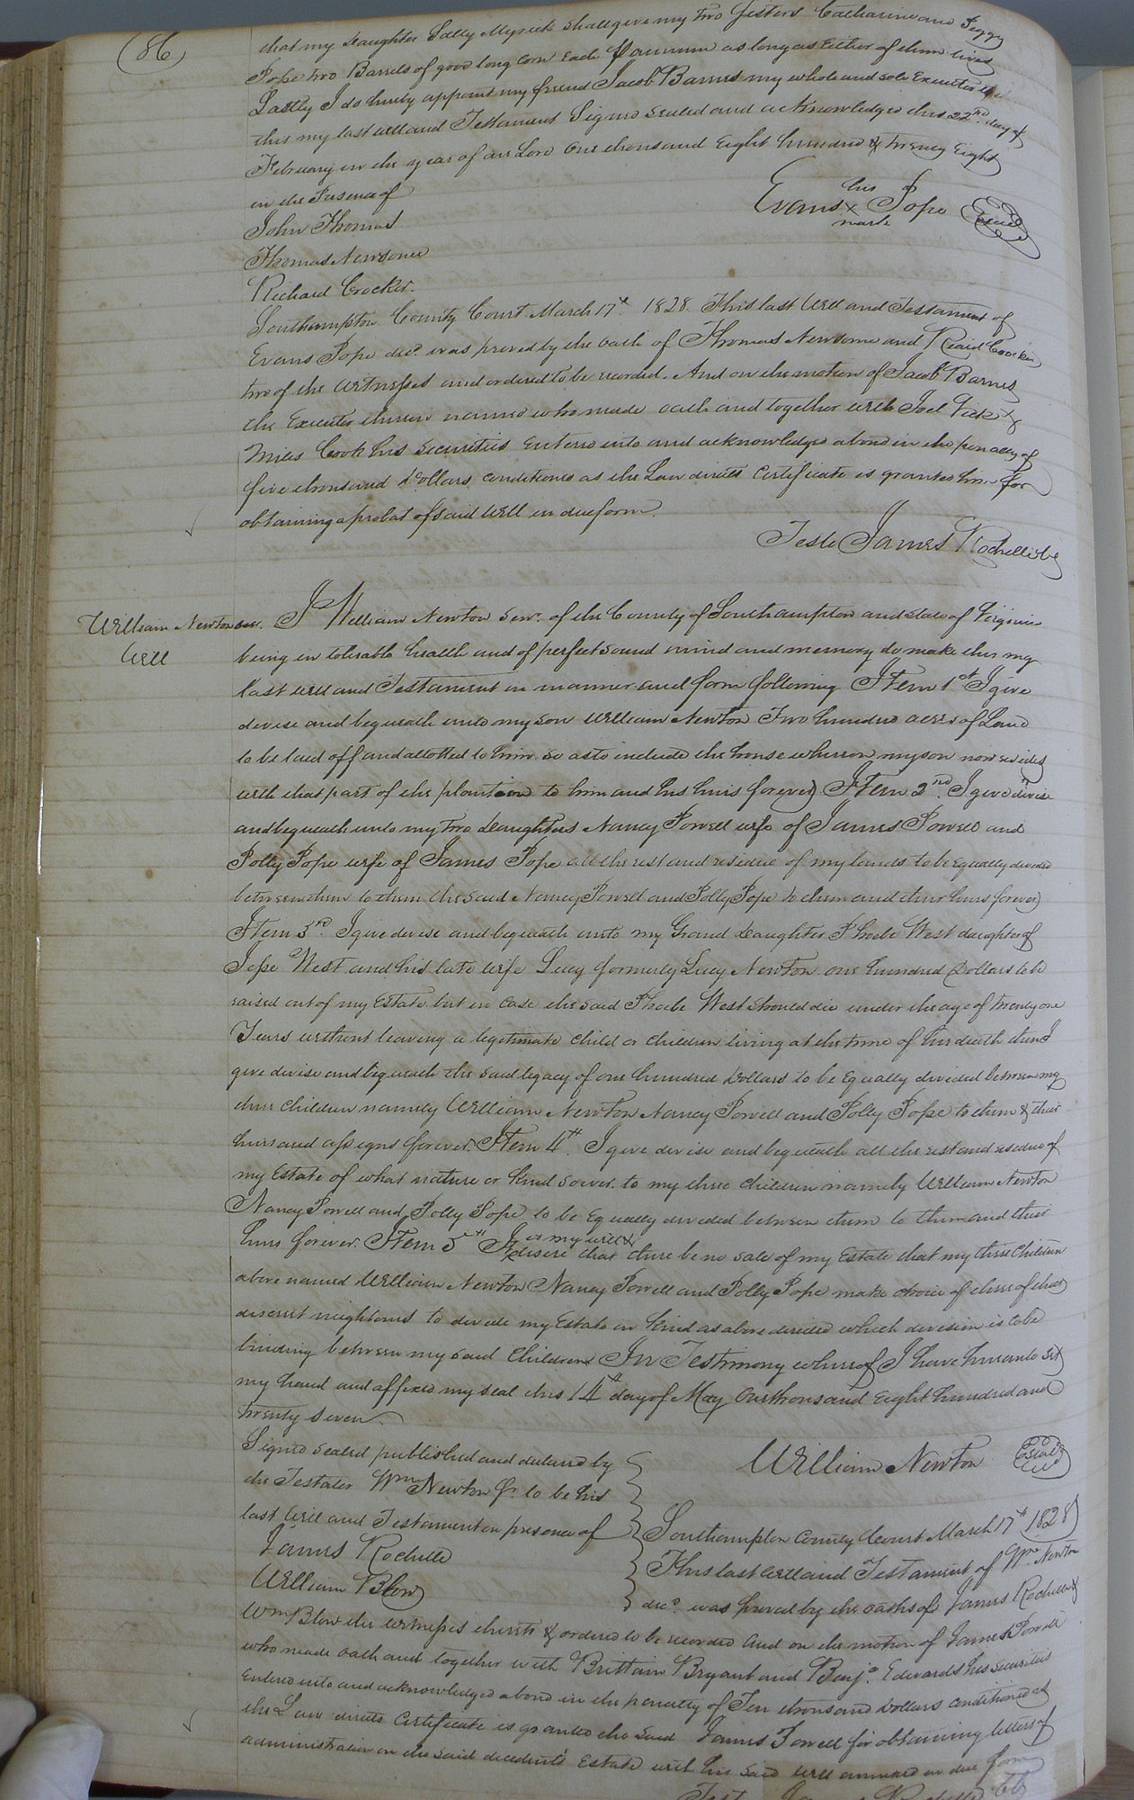 (86)
that my daughter Sally Myrick shall give my two Sisters Catharine and Peggy
Pope two Barrels of good long Corn Each ℔ annum as long as Either of them lives
Lastly I do hereby appoint my friend Jacob Barnes my whole and sole Executor
this my last will and Testament Signed Sealed and acknowledged this 22nd day of
February in the year of our Lord One thousand Eight hundred & twenty Eight
in the Presence of
John Thomas
Thomas Newsome
Richard Crocker.
his
Evans x Pope Seal
mark
Southampton County Court March 17th 1828. This last Will and Testament of
Evans Pope decd. was proved by the oath of Thomas Newsome and Richd Crocker
two of the witnesses and ordered to be recorded. And on the motion of Jacob Barnes
the Executor therein named who made oath and together with Joel Vick &
Miles Cook his securities Entered into and acknowledged a bond in the penalty of
five thousand Dollars, conditioned as the Law directs Certificate is granted him for
obtaining a probat of said Will in due form.
Teste James Rochelle clk
William Newton senr. Will
I William Newton Senr. of the County of Southampton and State of Virginia
being in tolerable health and of perfect sound mind and memory do make this my
last will and Testament in manner and form following Item 1st I give
devise and bequeath unto my son William Newton Two hundred acres of Land
to be laid off and allotted to him so as to include the house whereon my son now resides
with that part of the plantion to him and his heirs forever) Item 2nd. I give devise
and bequeath unto my two daughters Nancy Powell wife of James Powell and
Polly Pope wife of James Pope all the rest and residue of my lands to be Equally divided
between them to them the said Nancy Powell and Polly Pope to them and their heirs forever)
Item 3rd. I give devise and bequeath unto my Grand daughter Phoebe West daughter of
Jesse West and his late wife Lucy formerly Lucy Newton one hundred Dollars to be
raised out of my Estate but in case the said Phoebe West should die under the age of twenty one
Years without leaving a legitimate child or children living at the time of her death then I
give devise and bequeath the said legacy of one hundred Dollars to be Equally divided between my
three children namely William Newton Nancy Powell and Polly Pope to them & their
heirs and assigns forever. Item 4th. I give devise and bequeath all the rest and residue of
my Estate of what nature or kind soever to my three children namely William Newton
Nancy Powell and Polly Pope to be Equally divided between them to them and their
heirs forever. Item 5th It is my will & desire that there be no sale of my Estate that my three Children
above named William Newton Nancy Powell and Polly Pope make choice of three of their
discreet neighbours to divide my Estate in kind as above directed which division is to be
binding between my said Children In Testimony whereof I have hereunto set
my hand and affixed my seal this 14th day of May One thousand Eight hundred and
twenty seven.
William Newton Seal
Signed sealed published and declared by
the Testator Wm Newton Sr. to be his
last Will and Testament in presence of
James Rochelle
William Blow
Southampton County Court March 17th 1828
This last will and Testament of Wm. Newton
decd. was proved by the oaths of James Rochelle &
Wm Blow the witnesses thereto & ordered to be recorded and on the motion of James Powell
who made oath and together with Brittain Bryant and Benja. Edwards his securities
Entered into and acknowledged a bond in the penalty of Ten thousand Dollars conditioned as
the Law directs Certificate is granted the said James Powell for obtaining letters of
administration on the said decedents Estate with his said will annexed in due form
Test James Rochelle clk